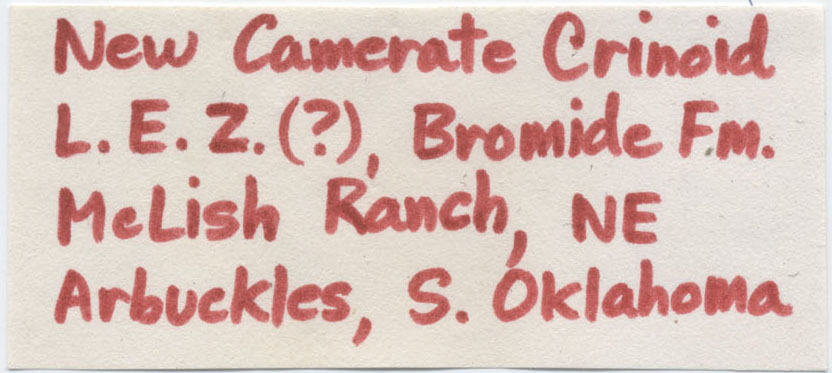 New Camerate Crinoid
L.E.Z.(?), Bromide Fm.
McLish Ranch, NE
Arbuckles, S. Oklahoma